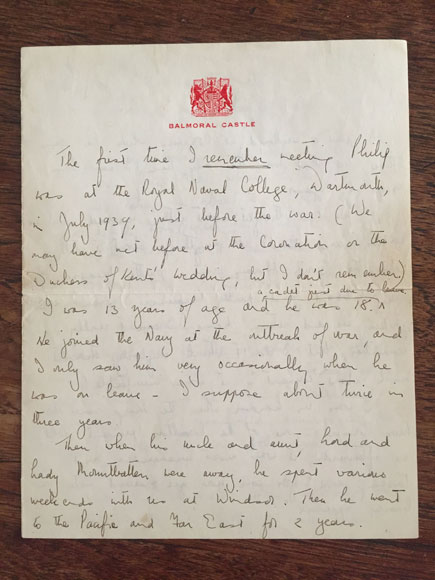 BALMORAL CASTLE
The first time I remember meeting Philip
was at the Royal Naval College, Dartmouth,
in July 1939, just before the war. (We
may have met before at the Coronation or the
Duchess of Kent's wedding, but I don't remember.)
a cadet just due to leave
I was 13 years of age and he was 18.^
He joined the Navy at the outbreak of war, and
I only saw him very occasionally when he
was on leave - I suppose about twice in
three years.
Then when his uncle and aunt, Lord and
Lady Mountbatten were away, he spent various
weekends with us at Windsor. Then he went
to the Pacific and Far East for 2 years.